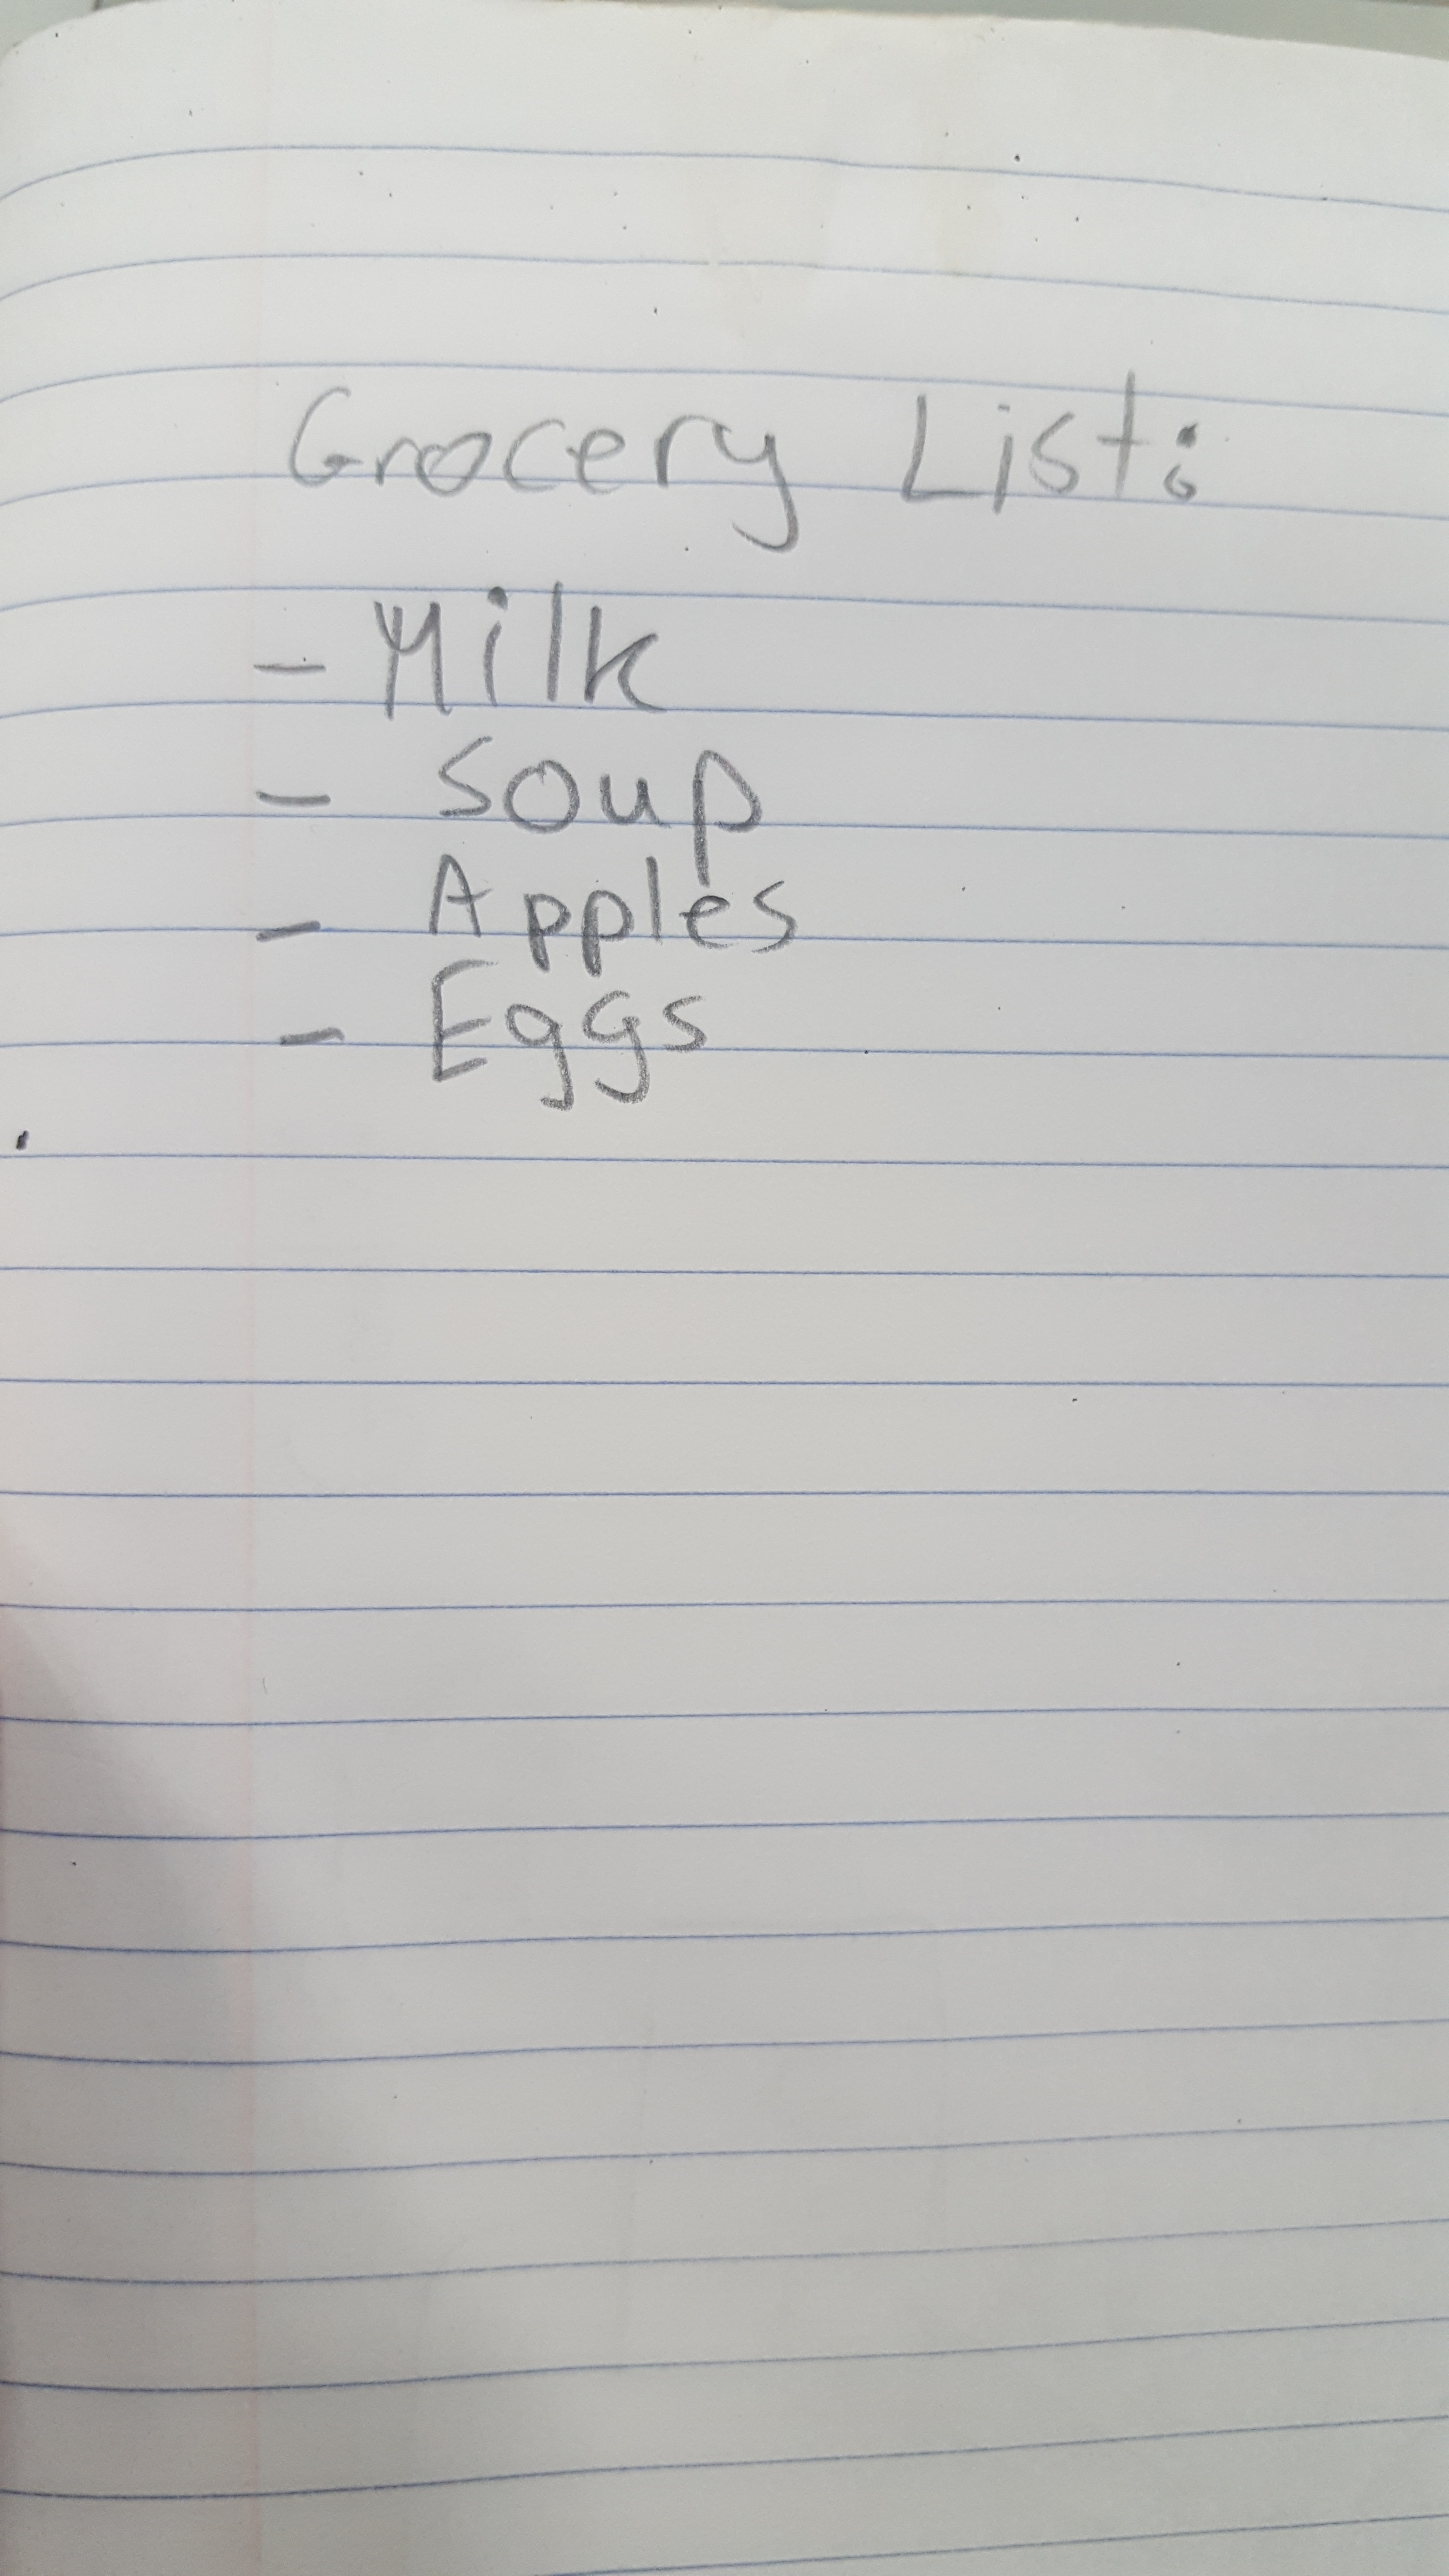 Grocery List:
- Milk
- Soup
- Apples
- Eggs